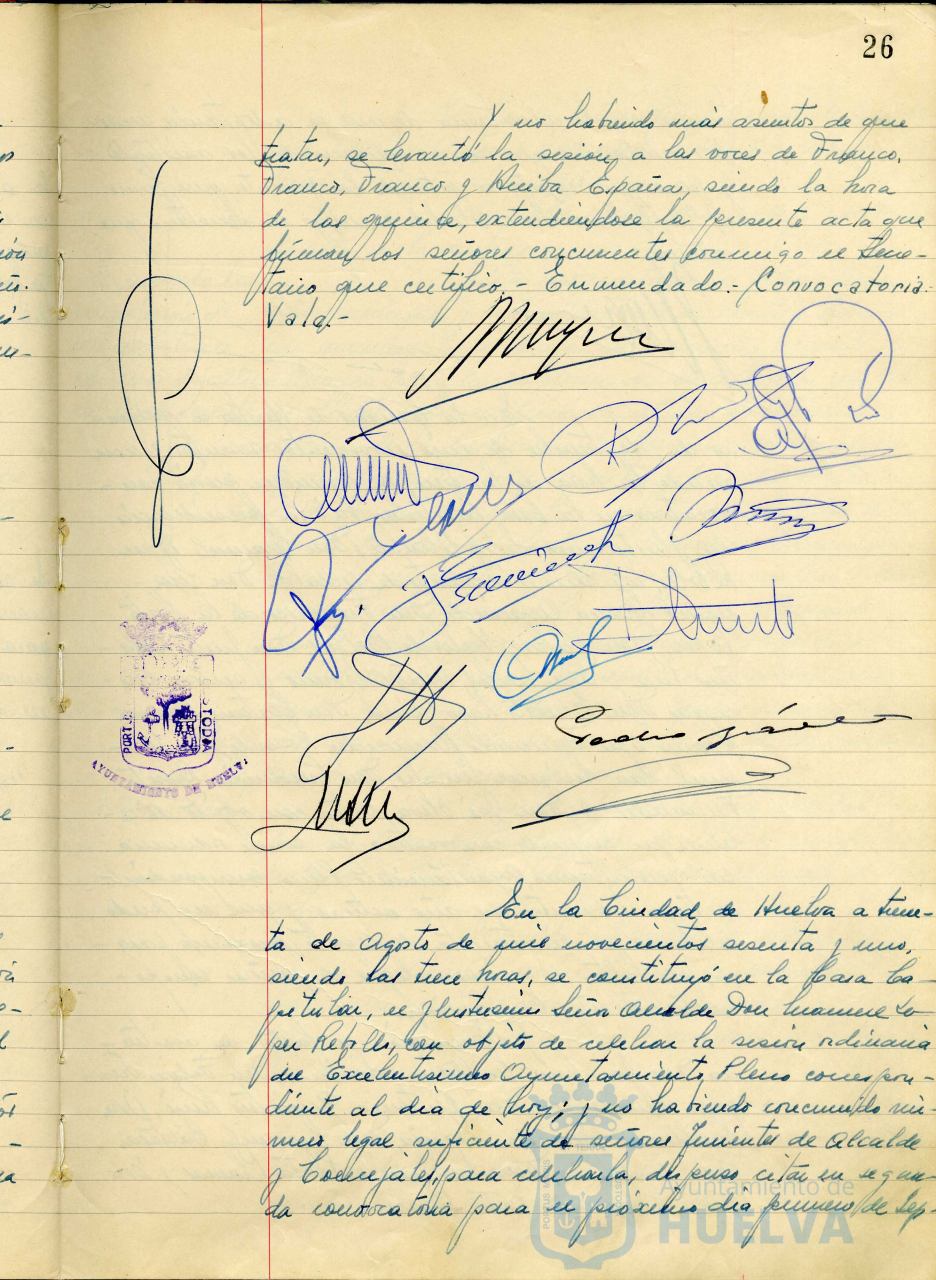 26
Y no habiendo más asuntos de que
tratar, se levantó la sesión, a las voces de Franco,
Franco, Franco y Arriba España, siendo la hora
de las quince, extendiéndose la presente acta que
firman los señores concurrentes conmigo el Secre-
tario que certifico.- Enmendado:- Convocatoria:
Vale.-
PORTUS
CUSTODIA
AYUNTAMIENTO DE HUELVA
En la Ciudad de Huelva a trein-
ta de Agosto de mil novecientos sesenta y uno,
siendo las trece horas, se constituyó en la Casa Ca-
pitular, el Ilustrísimo Señor Alcalde Don Manuel Ló-
pez Rebollo, con objeto de celebrar la sesión ordinaria
del Excelentísimo Ayuntamiento Pleno correspon-
diente al día de hoy; y no habiendo concurrido nú-
mero legal suficiente de señores Tenientes de Alcalde
y Concejales, para celebrarla, dispuso citar en segun-
da convocatoria para el próximo día primero de Sep-
Ayuntamiento de
HUELVA